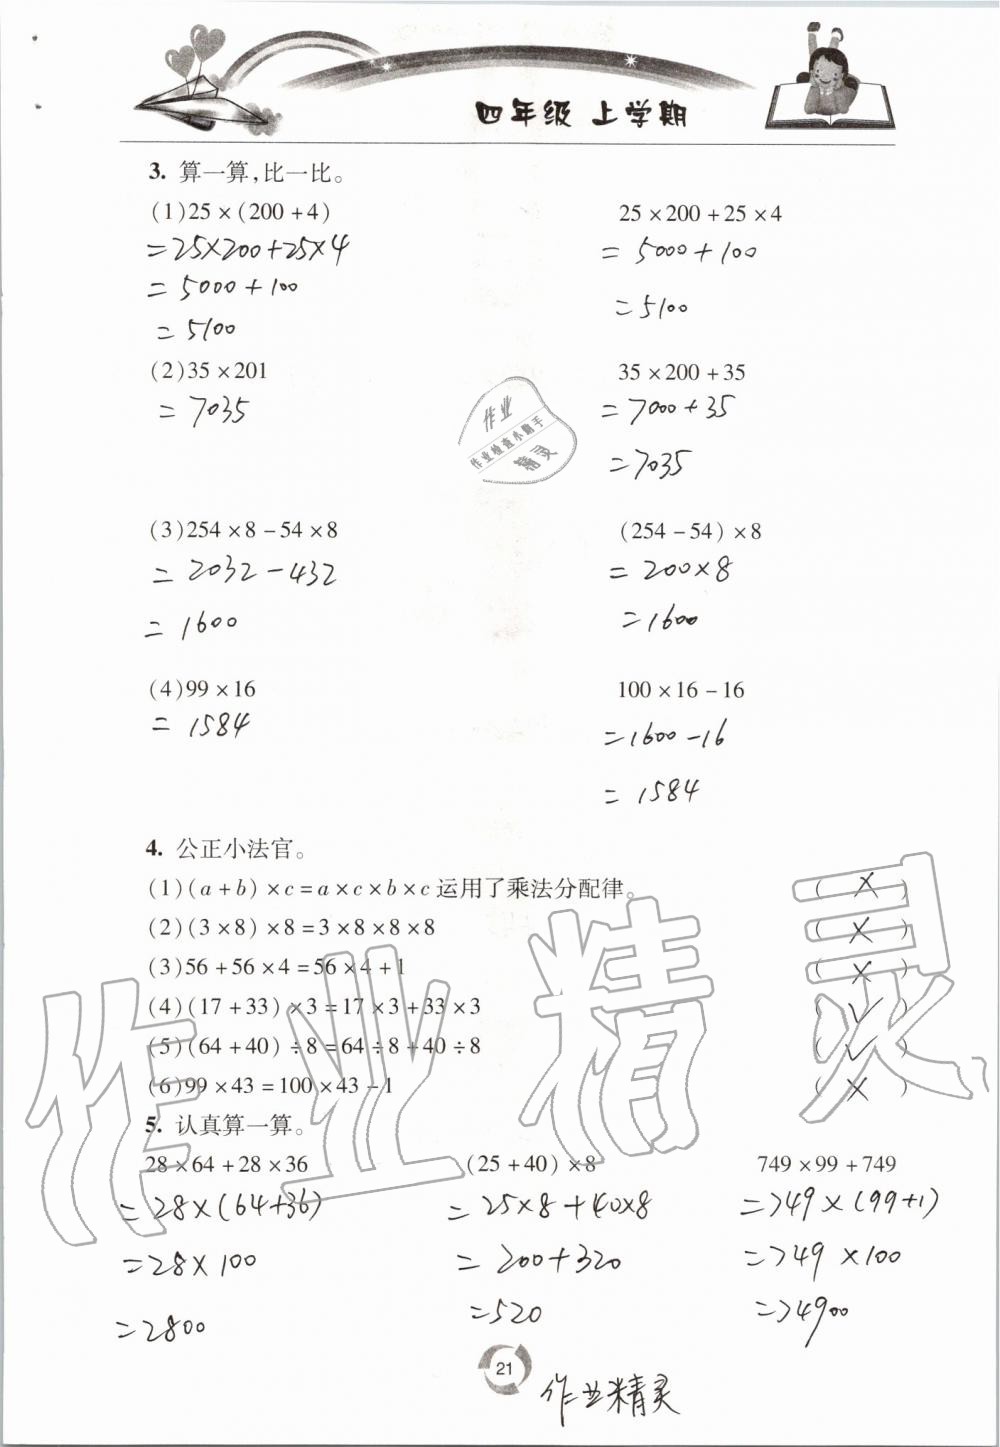 四年级 上学期
3. 算一算,比一比。
(1)25×(200+4)
=25×200+25×4
=5000+100
=5100
25×200+25×4
=5000+100
=5100
(2)35×201
=7035
35×200+35
=7000+35
=7035
作业
作业检查小助手
精灵
(3)254×8-54×8
=2032-432
=1600
(254-54)×8
=200×8
=1600
(4)99×16
=1584
100×16-16
=1600-16
=1584
4. 公正小法官。
(1)(a+b)×c=a×c×b×c运用了乘法分配律。 (×)
(2)(3×8)×8=3×8×8×8 (×)
(3)56+56×4=56×4+1 (×)
(4)(17+33)×3=17×3+33×3 (✓)
(5)(64+40)÷8=64÷8+40÷8 (✓)
(6)99×43=100×43-1 (×)
作业精灵
5. 认真算一算。
28×64+28×36
=28×(64+36)
=28×100
=2800
(25+40)×8
=25×8+40×8
=200+320
=520
749×99+749
=749×(99+1)
=749×100
=74900
21
作业精灵